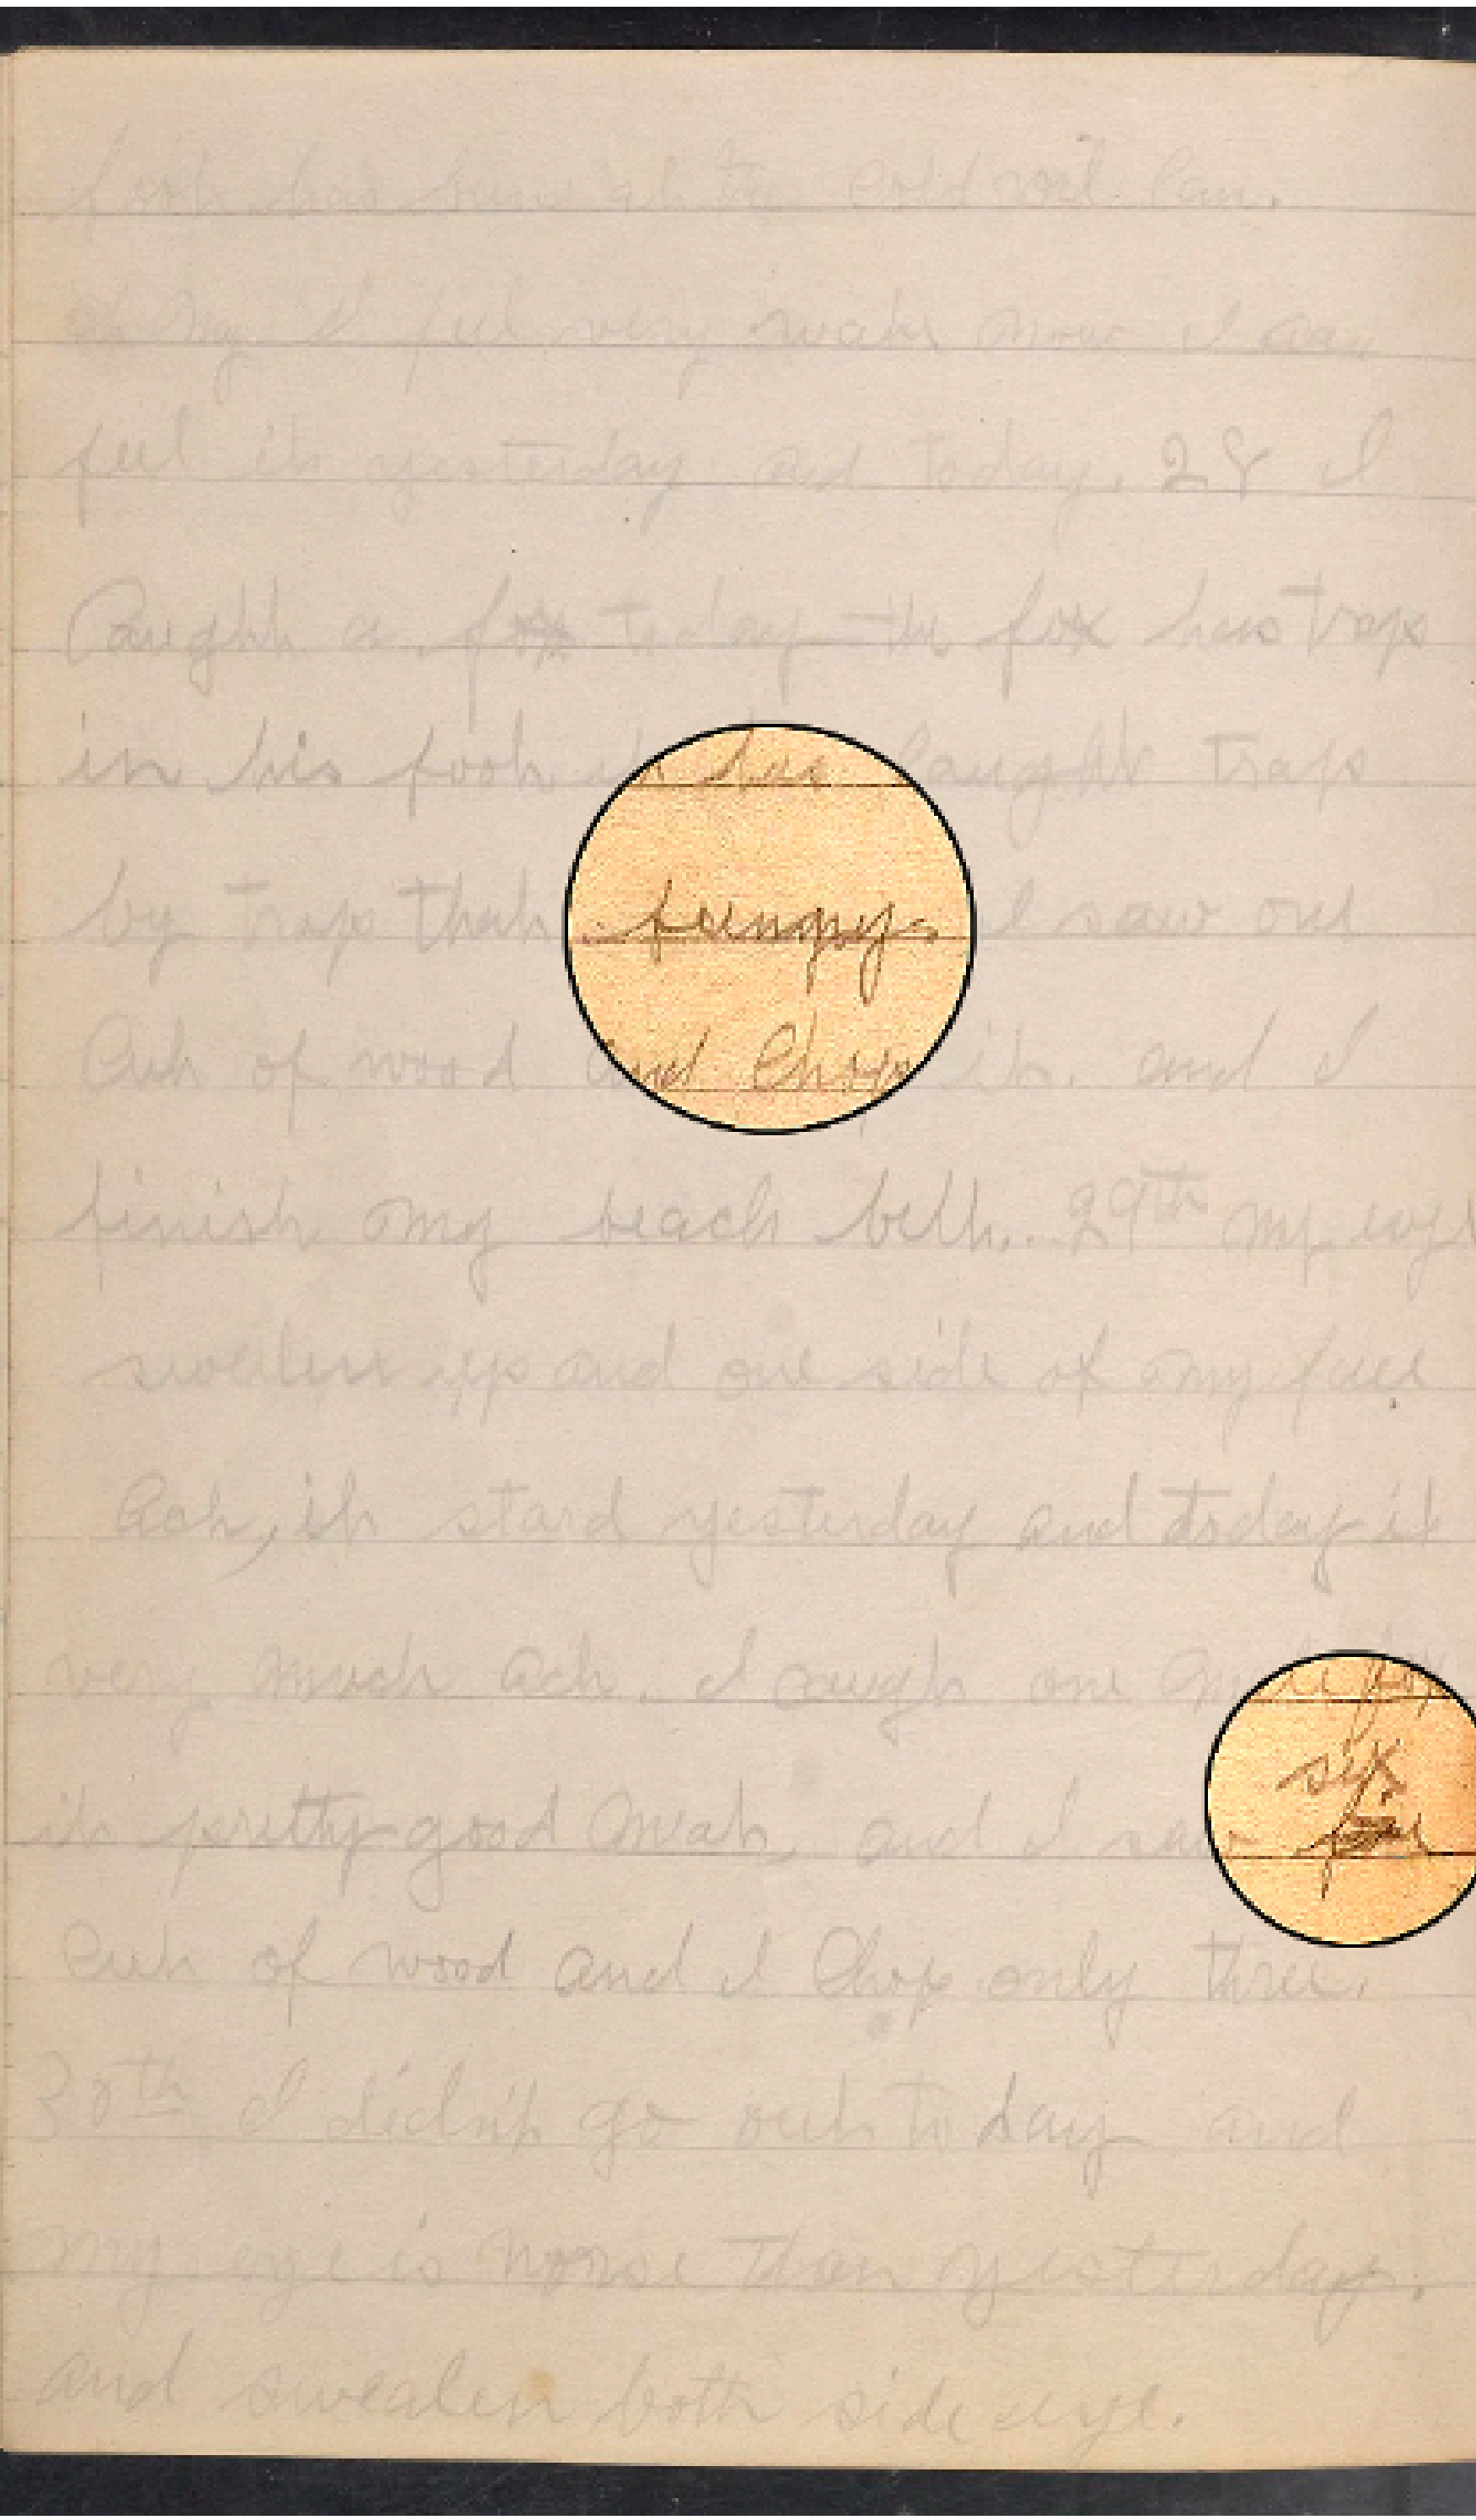 foot has burns at the cold oil can.
oh my I feel very weak now I can
feel it yesterday and today. 28 I
Caught a fox today the fox has trap
in his foot it has Caught trap
by trap that I saw one
Cut of wood and Chop it. and I
finish my beach belt. 29th my eye
swealen up and one side of my face
Ach, it stard yesterday and today it
very much Ach. I caugh one more fox
it pretty good mah, and I saw six
Cut of wood and I Chop only three.
30th I didn't go out today and
my eye is worse than yesterday.
and swealen both side eye.